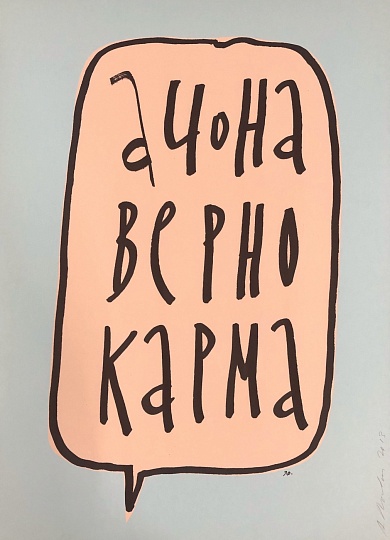 а чона
верно
карма